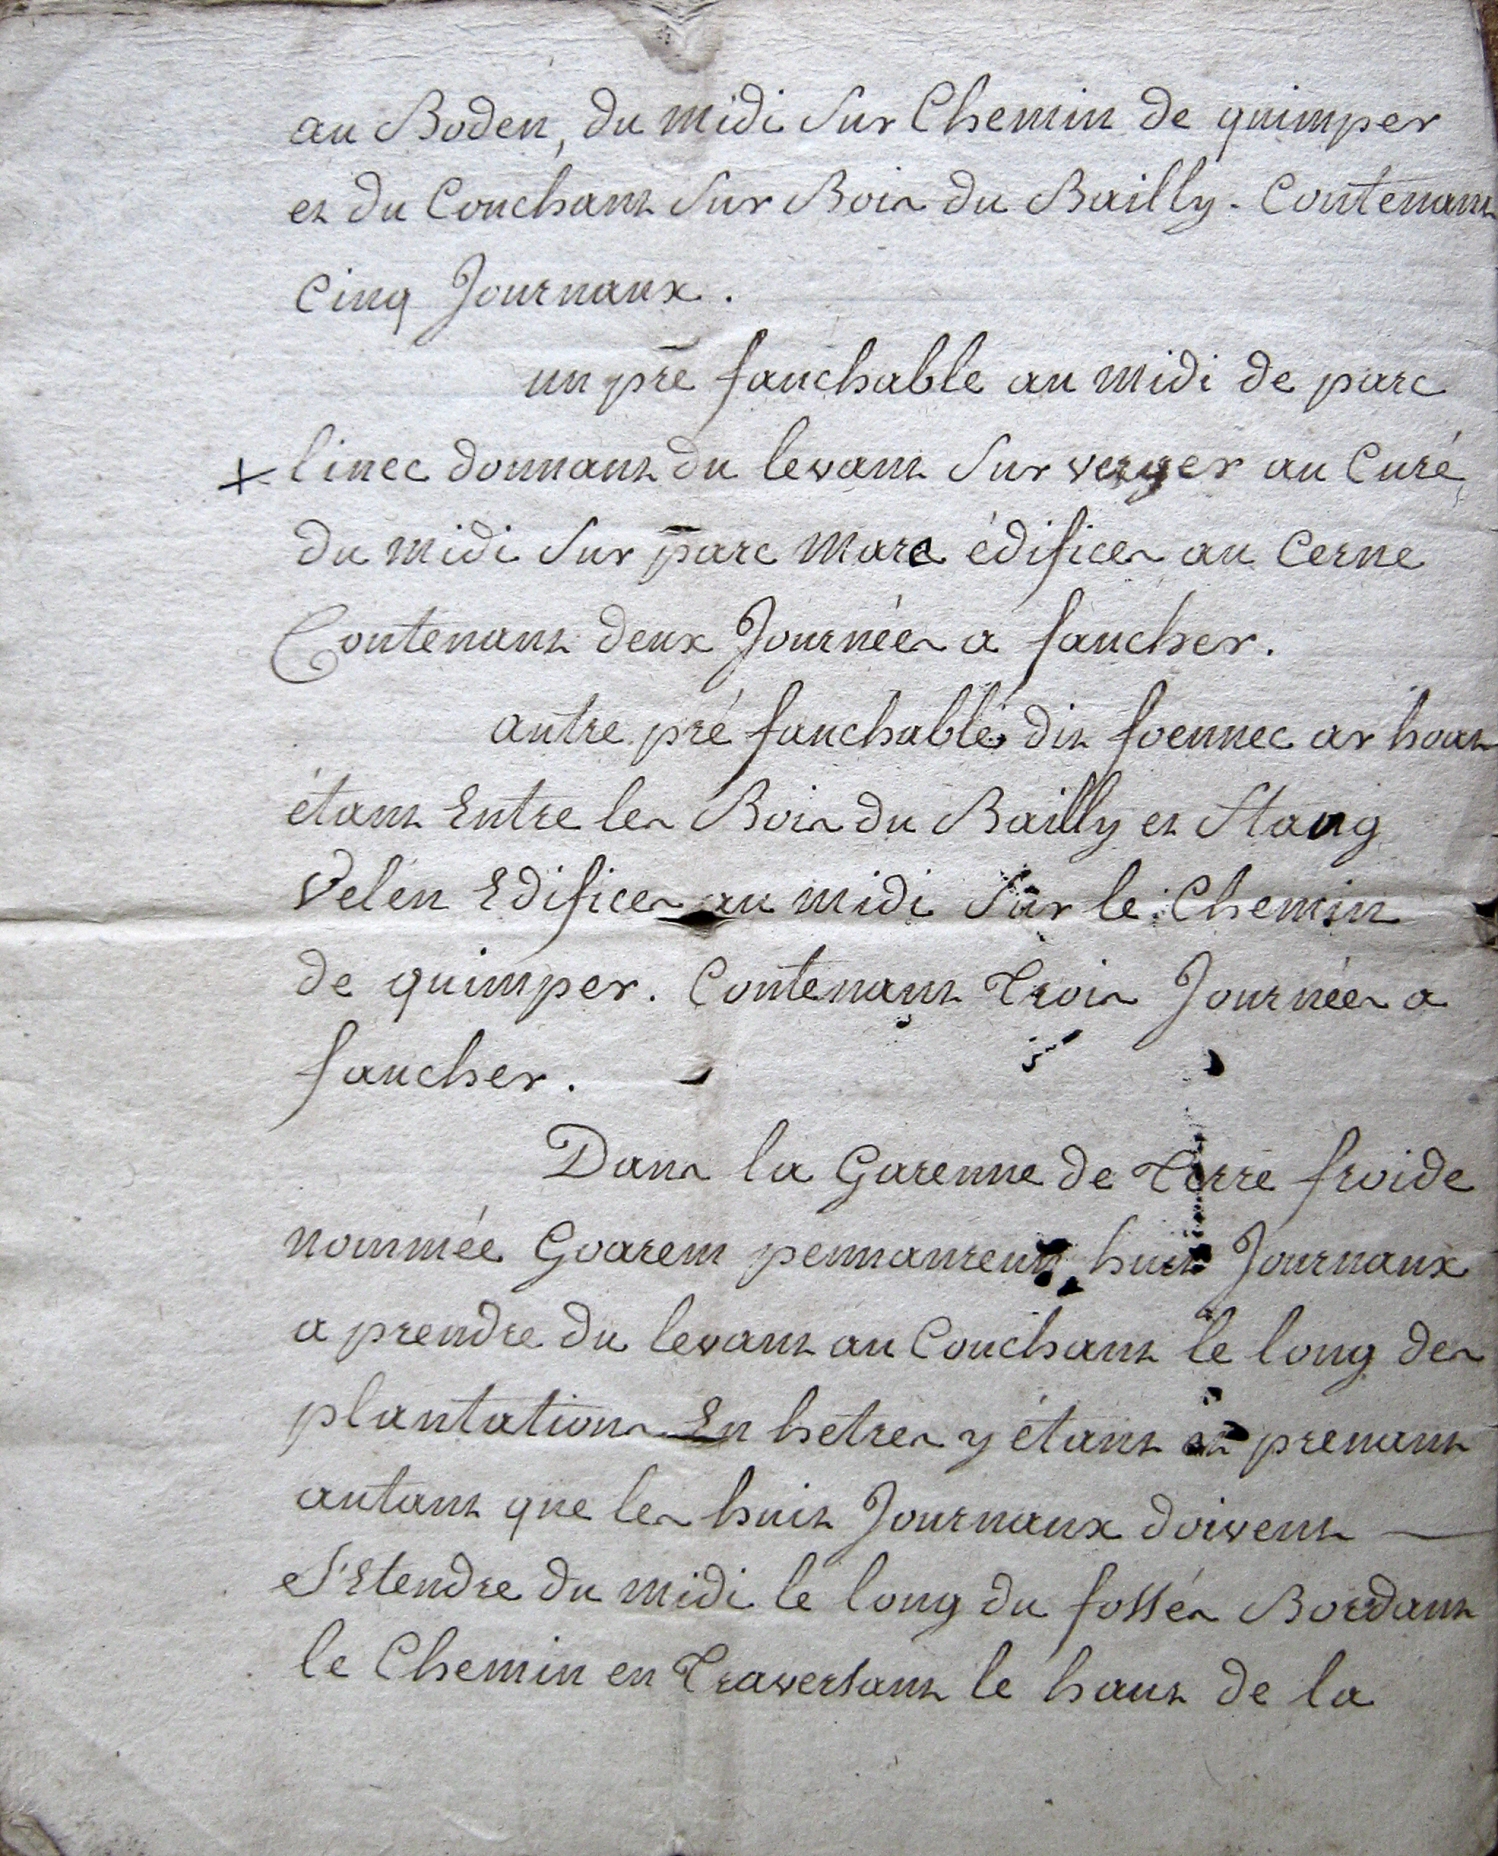 au Boden, du midi sur Chemin de quimper
et du Couchant sur Bois du Bailly. Contenant
Cinq Journaux.
un pré fauchable au midi de parc
linec donnant du levant sur verger au Curé,
du midi sur parc marc édifices au Cerne
Contenant deux Journées a faucher.
autre pré fauchable dit foennec ar hoat
étant Entre les Bois du Bailly et Stang
Velen Edifices au midi sur le Chemin
de quimper. Contenant Trois Journées a
faucher.
Dans la Garenne de Terre froide
nommée Goarem pennanreun huit Journaux
a prendre du levant au Couchant le long des
plantations En hetres y étant et prenant
autant que les huit Journaux doivent
S'Etendre du midi le long du fossés Bordant
le Chemin en Traversant le haut de la